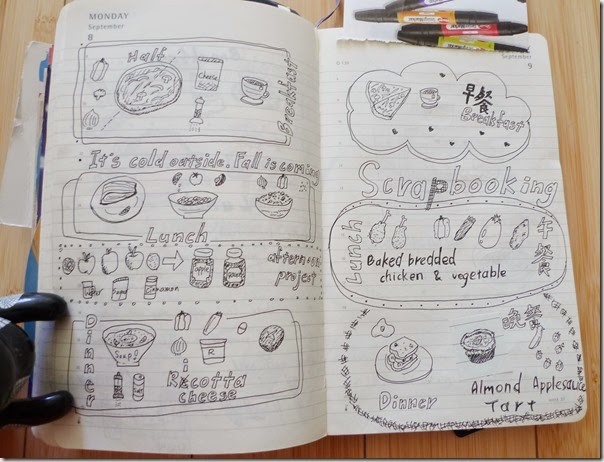 MONDAY
September
8
Half
Cheese
Breakfast
It's cold outside. Fall is coming
Lunch
apple
afternoon
project
Water
Sugar
Cinnamon
Dinner
Soup!
R
Ricotta
cheese
September
9
早餐
Breakfast
Scrapbooking
Lunch
午餐
Baked bredded
chicken & vegetable
晚餐
Dinner
Almond Applesauce
Tart